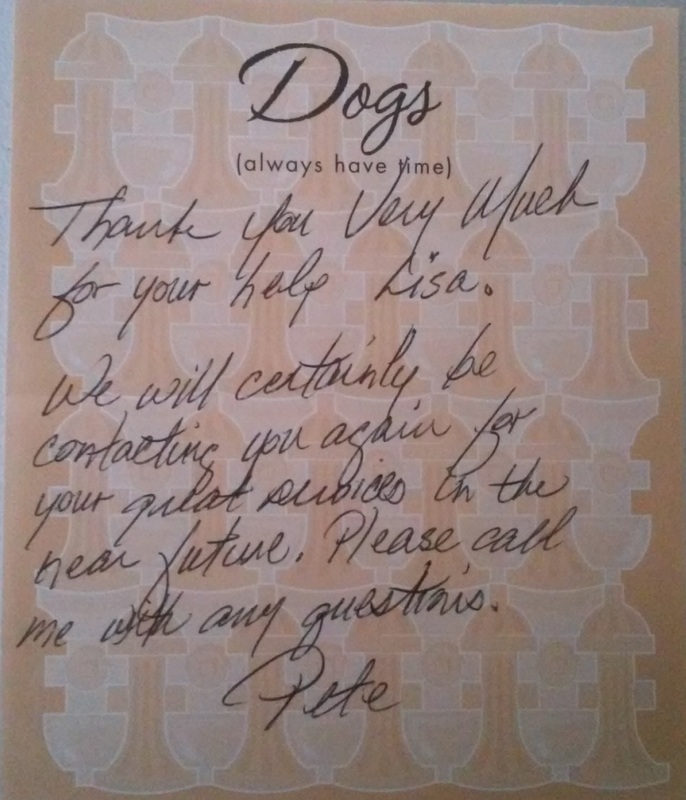 Dogs
(always have time)
Thank you Very Much
for your help Lisa.
We will certainly be
contacting you again for
your great services in the
near future. Please call
me with any questions.
Pete